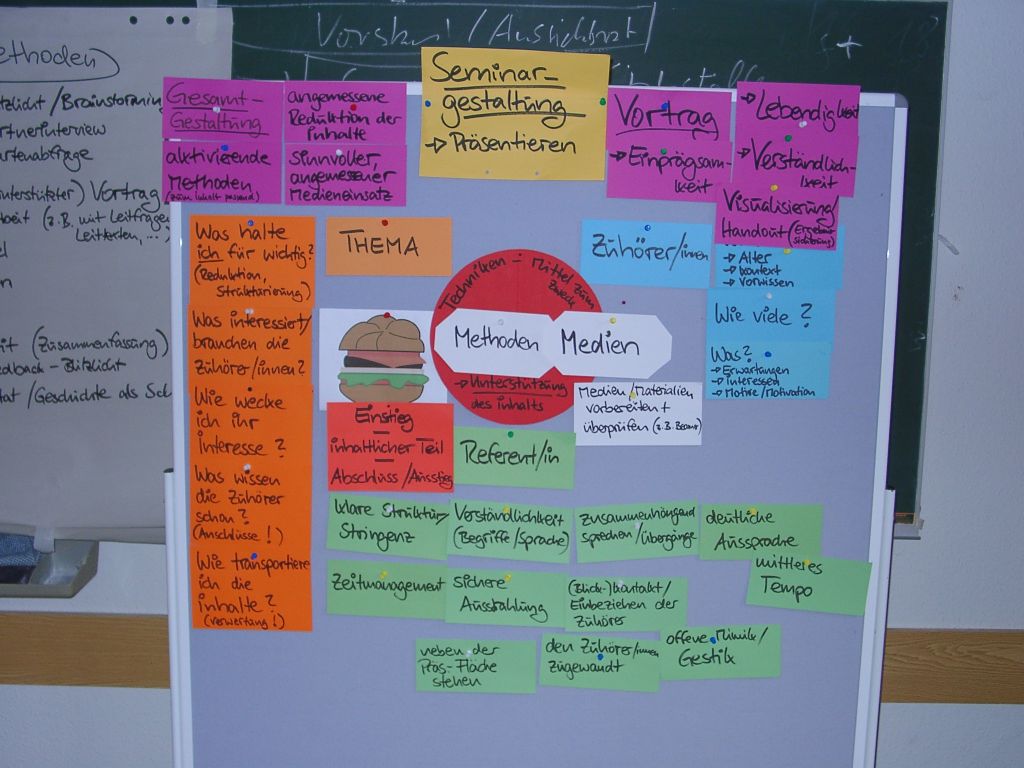 Vorstand / Aussicht
ethoden
tzlicht / Brainstorming
rtnerinterview
artenabfrage
unterstützter) Vortrag
beit (z.B. mit Leitfragen
Leittexten, ...)
eit (Zusammenfassung)
edback - Blitzlicht
tat / Geschichte als Sch
Gesamt-
Gestaltung
angemessene
Reduktion der
Inhalte
aktivierende
Methoden
(zum Inhalt passend)
sinnvoller,
angemessener
Medieneinsatz
Seminar-
gestaltung
→ Präsentieren
Vortrag
→ Einprägsam-
keit
→ Lebendigkeit
→ Verständlich-
keit
Visualisierung/
Handout (Ergebnis-
sicherung)
Was halte
ich für wichtig?
(Reduktion,
Strukturierung)
Was interessiert/
brauchen die
Zuhörer/innen?
Wie wecke
ich ihr
Interesse?
Was wissen
die Zuhörer
schon?
(Anschlüsse!)
Wie transportiere
ich die
Inhalte?
(Verwertung!)
THEMA
Einstieg
inhaltlicher Teil
Abschluss/Ausstieg
Techniken - Mittel zum
Zweck
Methoden
Medien
→ Unterstützung
des Inhalts
Medien/Materialien
vorbereiten +
überprüfen (z.B. Beamer)
Zuhörer/innen
→ Alter
→ Kontext
→ Vorwissen
Wie viele?
Was?
→ Erwartungen
→ Interessen
→ Motive/Motivation
Referent/in
klare Struktur/
Stringenz
Verständlichkeit
(Begriffe/Sprache)
zusammenhängend
sprechen/Übergänge
deutliche
Aussprache
Zeitmanagement
sichere
Ausstrahlung
(Blick-)kontakt/
Einbeziehen der
Zuhörer
mittleres
Tempo
neben der
Präs-Fläche
stehen
den Zuhörer/innen
zugewandt
offene Mimik/
Gestik